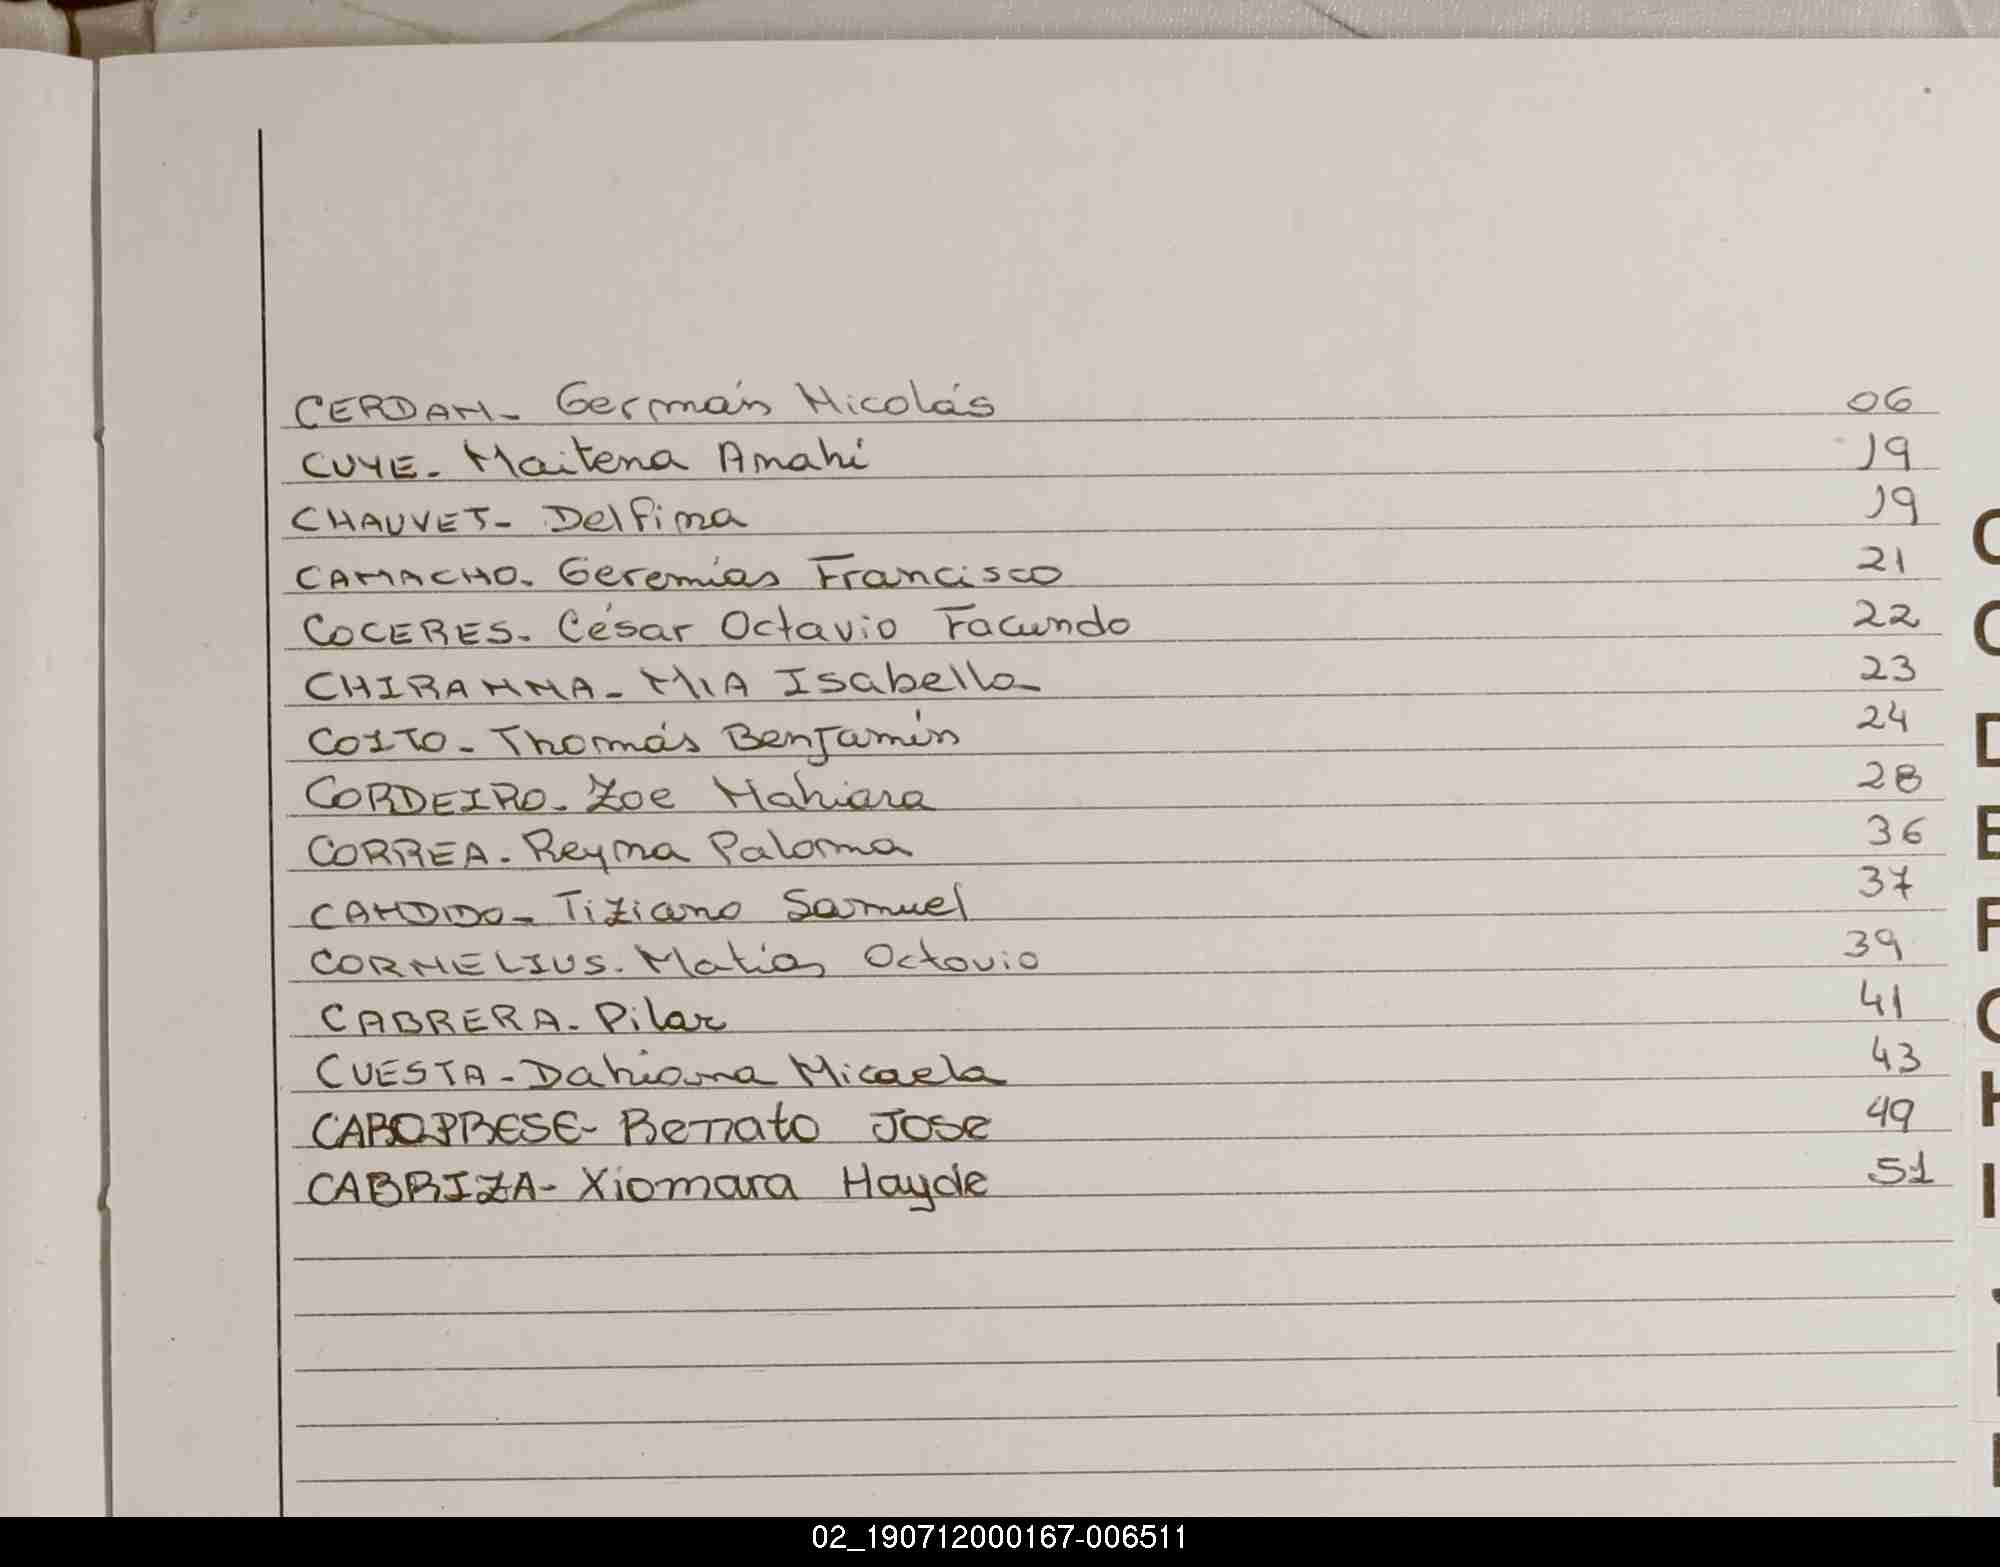 CERDAN- Germán Nicolás 06
CUYE- Maitena Amahí 19
CHAUVET- Delfina 19
CAMACHO- Geremías Francisco 21
COCERES- César Octavio Facundo 22
CHIRANNA- MIA Isabella 23
COITO- Thomás Benjamín 24
CORDEIRO- Zoe Nahiara 28
CORREA- Reyna Paloma 36
CANDIDO- Tiziano Samuel 37
CORNELIUS- Matías Octavio 39
CABRERA- Pilar 41
CUESTA- Dahiana Micaela 43
Renato Jose 49
CABRIZA- Xiomara Hayde 51
02_190712000167-006511